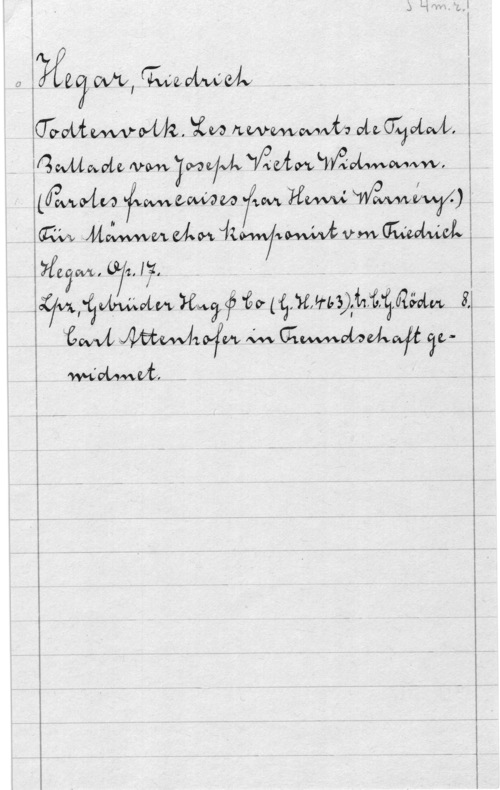 J 4 m. r.
Hegar, Friedrich
Todtenvolk. Les revenants de Tydal.
Ballade von Joseph Victor Widmann.
(Paroles francaises par Henri Warnéry.)
Für Männerchor komponirt von Friedrich
Hegar. Op. 17.
Lpz, Gebrüder Hug & Co (G.H.463); tr. C.G. Röder 8.
Carl Attenhofer in Freundschaft ge-
widmet.